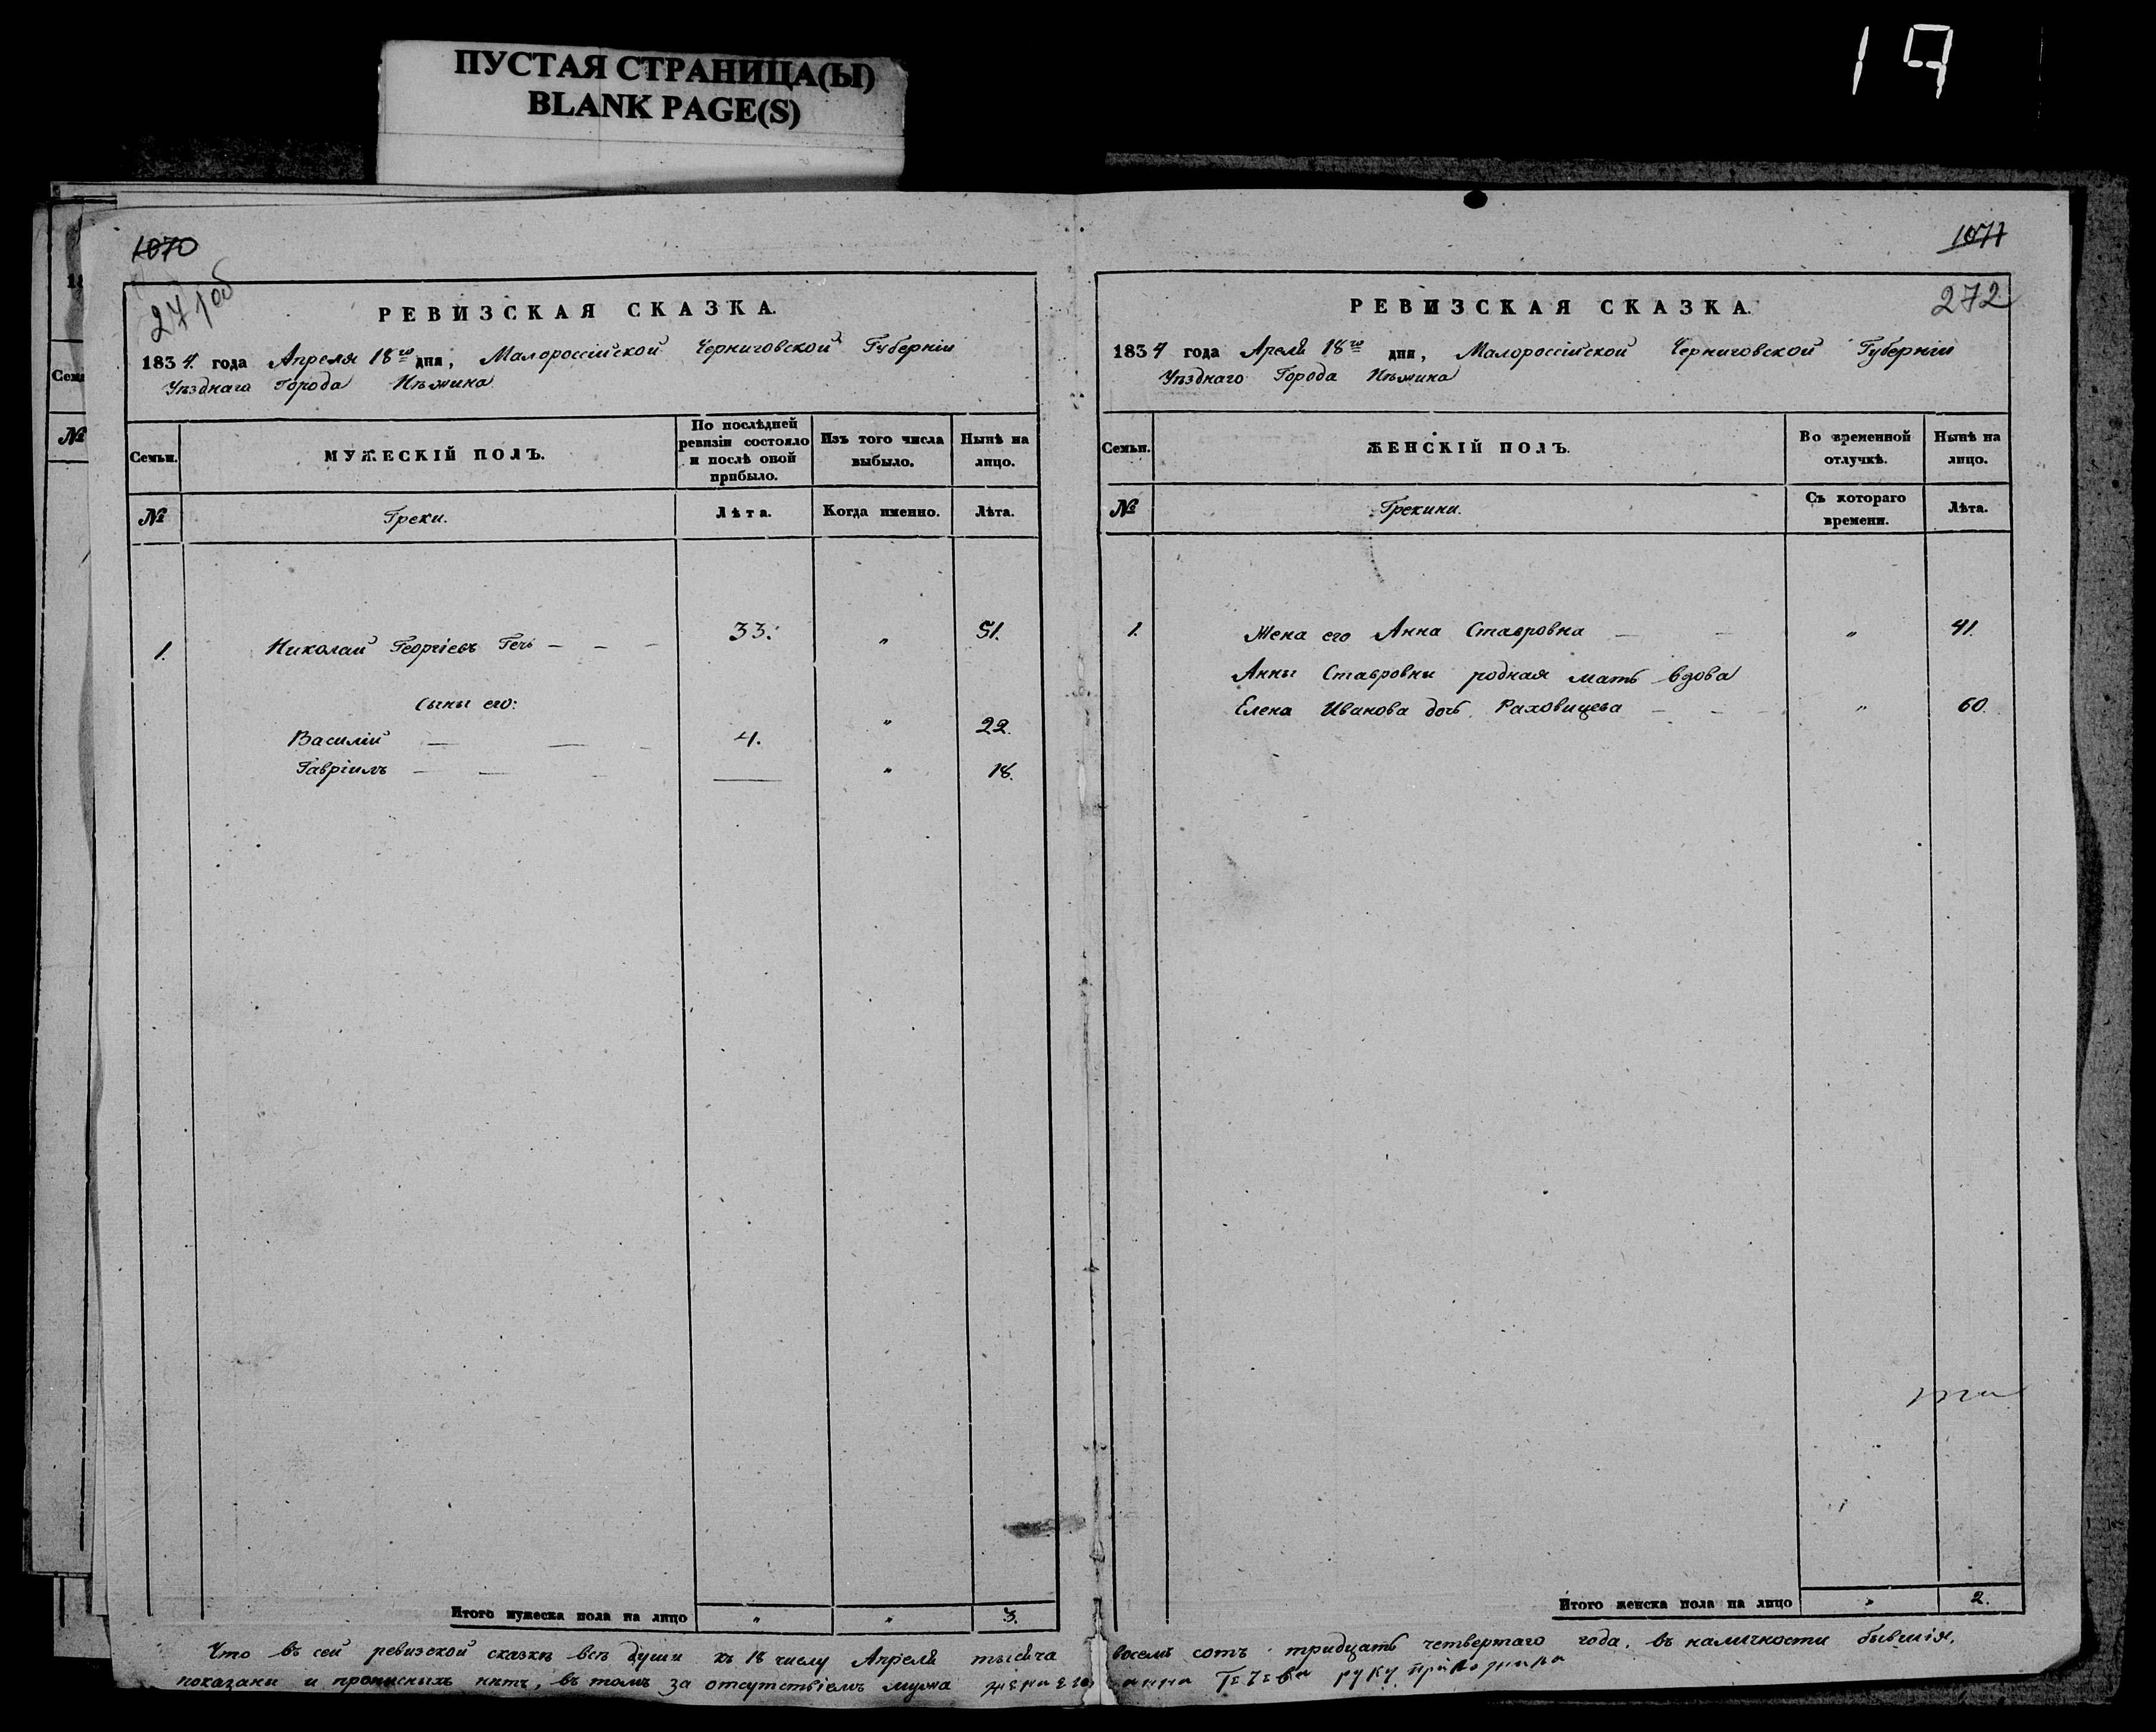 ПУСТАЯ СТРАНИЦА(Ы)
BLANK PAGE(S)
19
1070
271об
РЕВИЗСКАЯ СКАЗКА.
1834. года Апреля 18го дня, Малороссійской Черниговской Губерніи
Уѣзднаго Города Нѣжина
Семьи.
МУЖЕСКІЙ ПОЛЪ.
По послѣдней ревизіи состояло и послѣ оной прибыло.
Изъ того числа выбыло.
Нынѣ на лицо.
№
Греки.
Лѣта.
Когда именно.
Лѣта.
1. Николай Георгіевъ Гечь — — — 33. " 51.
Сыны его:
Василій — — — 4. " 22.
Гавріилъ — — — — " 18.
Итого мужеска пола на лицо " " 3.
1071
272
РЕВИЗСКАЯ СКАЗКА.
1834 года Апреля 18го дня, Малороссійской Черниговской Губерніи
Уѣзднаго Города Нѣжина
Семьи.
ЖЕНСКІЙ ПОЛЪ.
Во временной отлучкѣ.
Нынѣ на лицо.
№
Грекини.
Съ котораго времени.
Лѣта.
1. Жена его Анна Ставровна — — " 41.
Анны Ставровны родная мать вдова
Елена Иванова дочь Раховицева — — — " 60.
Итого женска пола на лицо " 2.
Что въ сей ревизской сказкѣ всѣ души къ 18 числу Апреля тысяча восемь сотъ тридцать четвертаго года, въ наличности бывшія,
показаны и прописныхъ нѣтъ, въ томъ за отсутствіемъ мужа жена его анна Гечева руку приложила